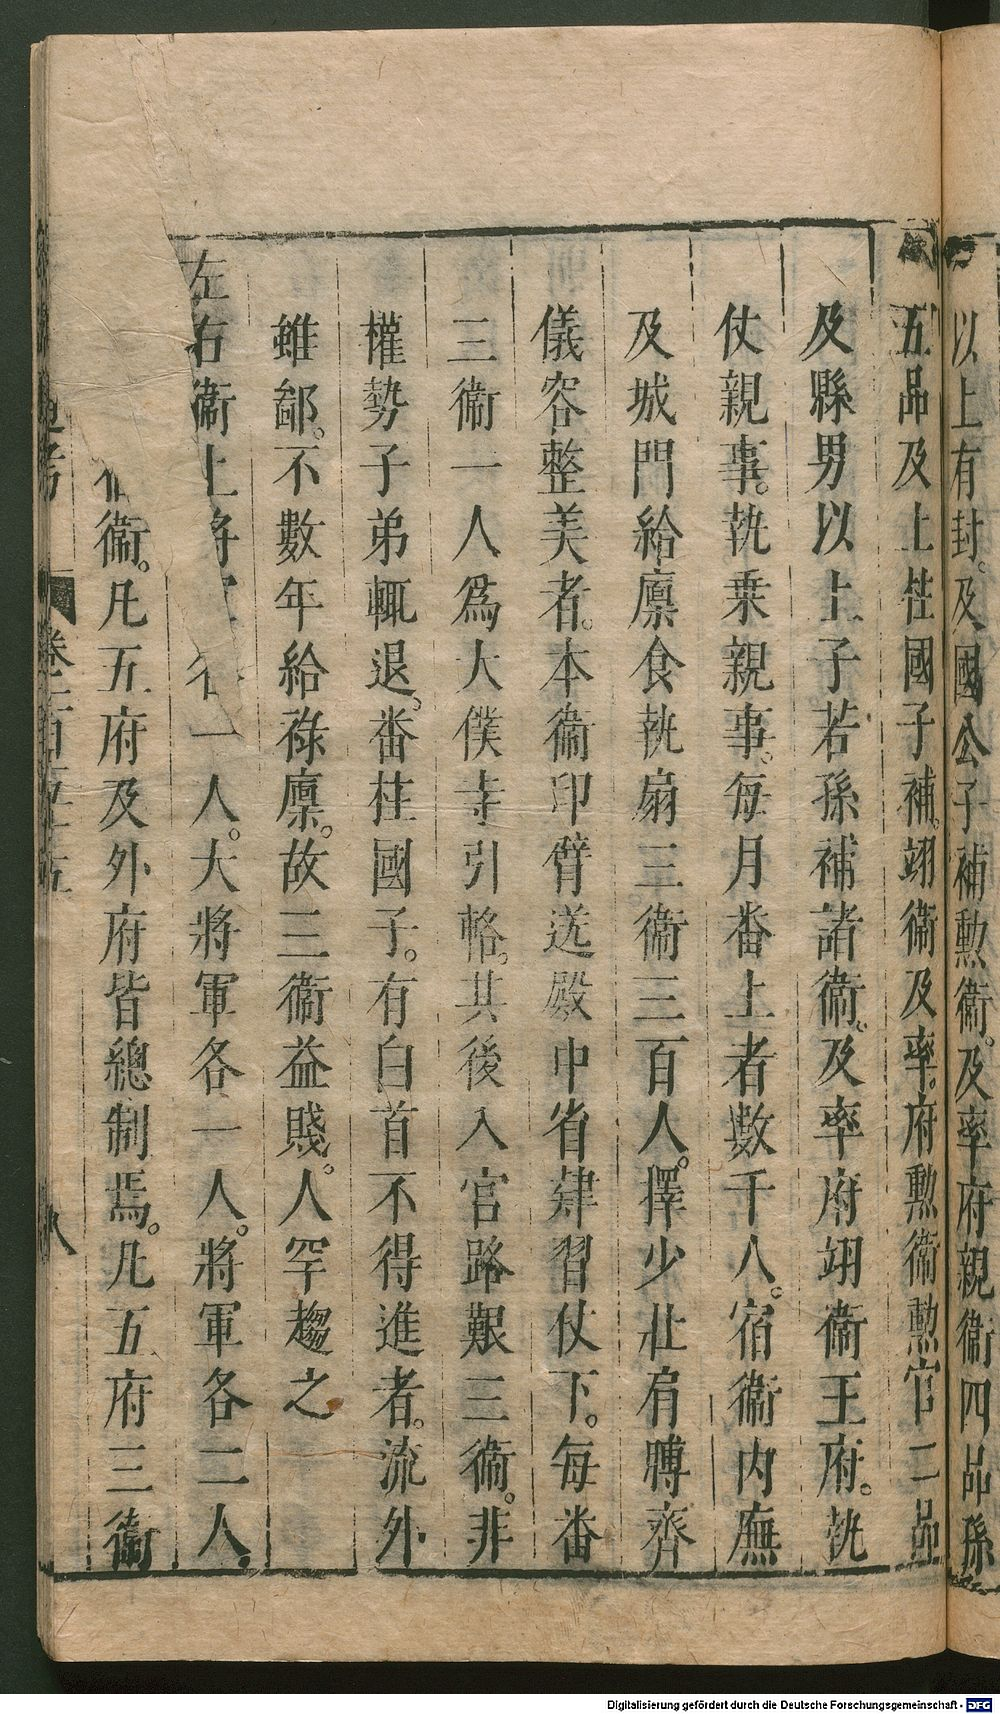 以上有封。及國公子補勲衛。及率府親衛四品孫
五品及上柱國子補。翊衛及率。府勲衛勲官二品
及縣男以上子若孫補諸衛。及率府翊衛王府。執
仗親事。執乗親事。每月番上者數千人。宿衛内廡
及城門給廪食執扇三衛三百人。擇少壯肩膊齊
儀容整美者。本衛印臂送殿中省肄習仗下。每番
三衛一人爲大僕寺引輅。其後入官路艱三衛。非
權勢子弟輒退。番柱國子。有白首不得進者。流外
雖鄙。不數年給祿廪。故三衛益賤。人罕趨之
左右衛上將 一人。大將軍各一人。將軍各二人
衛。凡五府及外府皆總制焉。凡五府三衛
通考 卷一百五十五 八
Digitalisierung gefördert durch die Deutsche Forschungsgemeinschaft - DFG